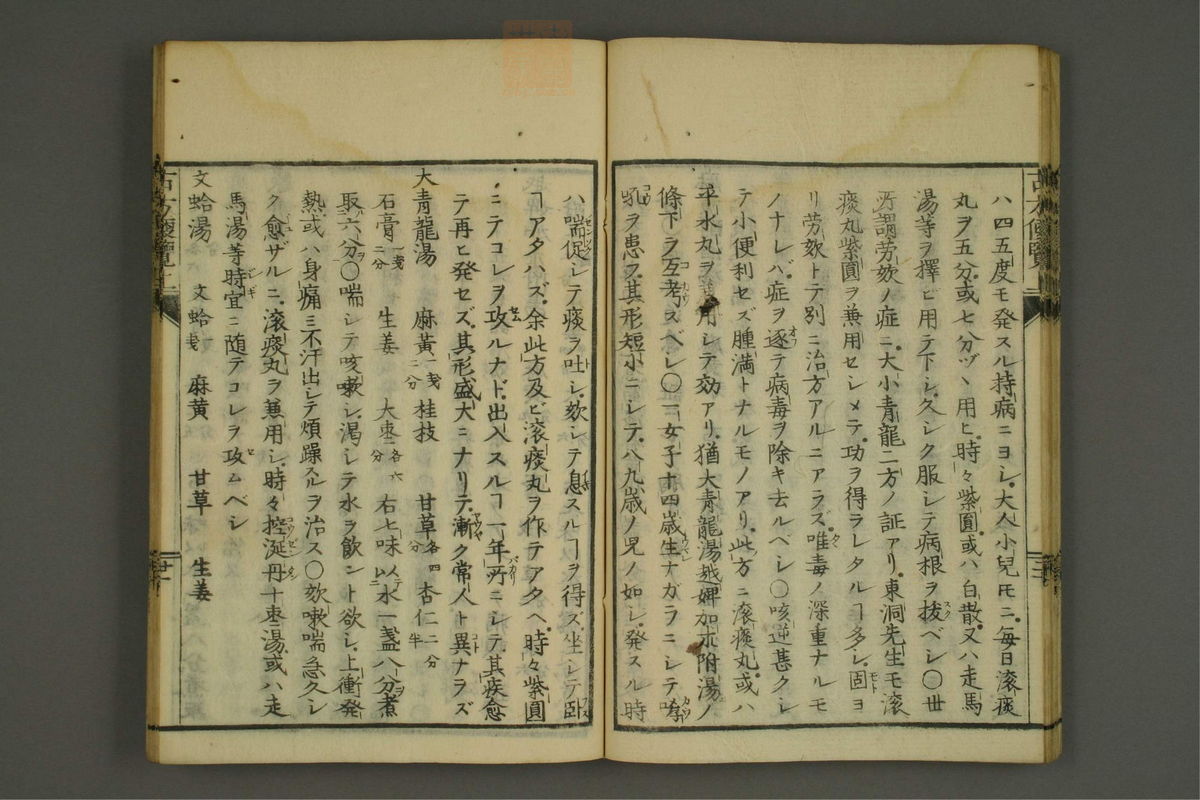 ハ四五度モ発スル持病ニヨシ大人小兒𪜈ニ毎日滚痰
丸ヲ五分或ヒハ七分ヅヽ用ヒ時々紫圓或ハ白散又ハ走馬
湯等ヲ擇ビ用テ下シ久シク服シテ病根ヲ拔ベシ〇世
所謂労欬ノ症ニ大小青龍二方ノ証アリ東洞先生モ滚
痰丸紫圓ヲ兼用セシメテ功ヲ得ラレタルヿ多シ固ヨ
リ労欬トテ別ニ治方アルニアラズ唯毒ノ深重ナルモ
ノナレバ症ヲ逐テ病毒ヲ除キ去ルベシ〇咳逆甚クシ
テ小便利セズ腫満トナルモノアリ此方ニ滚痰丸或ハ
平水丸ヲ兼用シテ効アリ猶大青龍湯越婢加朮附湯ノ
條下ヲ互考スベシ〇一女子十四歳生ナガラニシテ哮
吼ヲ患フ其形短小ニシテ八九歳ノ児ノ如シ発スル時
ハ喘促シテ痰ヲ吐シ欬シテ息スルヿヲ得ズ坐シテ臥
ヿアタハズ余此方及ビ滚痰丸ヲ作テアタヘ時々紫圓
ニテコレヲ攻ルナド出入スルヿ一年所ニシテ其疾愈
テ再ヒ発セズ其形盛大ニナリテ漸ク常人ト異ナラズ
大青龍湯 麻黄一戔二分 桂枝 甘草各四分 杏仁二分半
石膏一戔二分 生姜 大枣各六分 右七味以水一盞八分煮
取六分〇喘シテ咳嗽シ渇シテ水ヲ飲ント欲シ上衝発
熱或ハ身痛ミ不汗出シテ煩躁スルヲ治ス〇欬嗽喘急久シ
ク愈ザルニ滚痰丸ヲ兼用シ時々控涎丹十枣湯或ハ走
馬湯等時宜ニ随テコレヲ攻ムベシ
文蛤湯 文蛤 麻黄 甘草 生姜